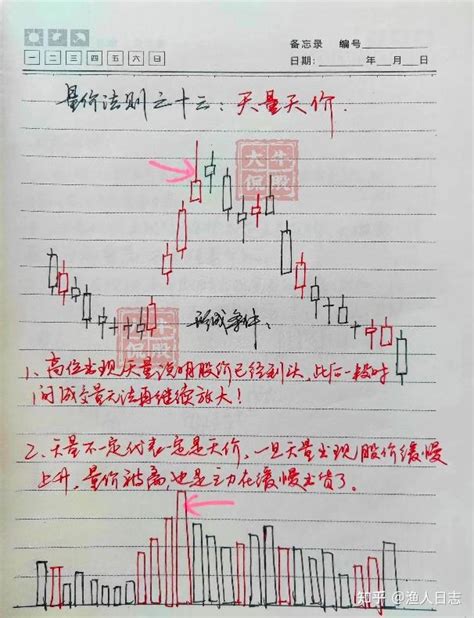 备忘录 编号
一 二 三 四 五 六 日 日期： 年 月 日
量价法则之十三：天量天价.
大牛
侃股
形成条件：
大牛
侃股
1、高位出现天量说明股价已经到头，此后一段时
间成交量无法再继续放大！
2、天量不一定代表一定是天价，一旦天量出现股价缓慢
上升，量价 高,也是主力在缓慢出货了。
知乎 @渔人日志